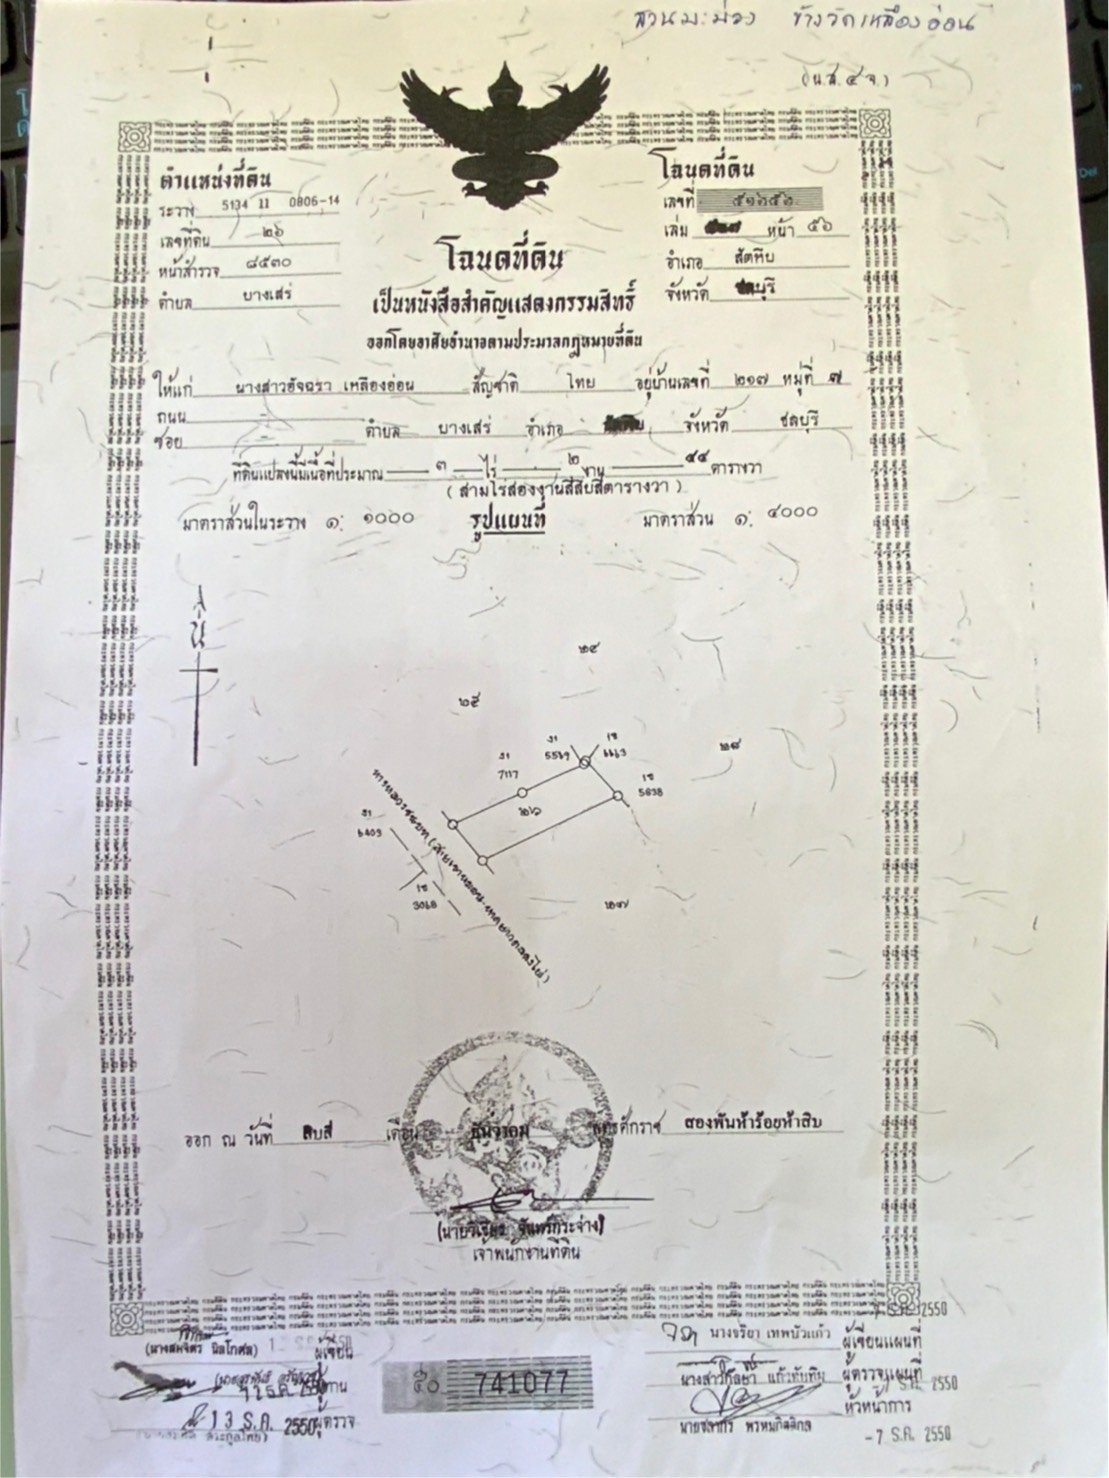 สวนมะม่วง ข้างวัดเหลืองอ่อน
(น.ส.๔ จ.)
ตำแหน่งที่ดิน
ระวาง 5134 II 0806-14
เลขที่ดิน ๒๖
หน้าสำรวจ ๘๕๓๐
ตำบล บางเสร่
โฉนดที่ดิน
เลขที่ ๕๑๖๕๖
เล่ม หน้า ๕๖
อำเภอ สัตหีบ
จังหวัด ชลบุรี
โฉนดที่ดิน
เป็นหนังสือสำคัญแสดงกรรมสิทธิ์
ออกโดยอาศัยอำนาจตามประมวลกฎหมายที่ดิน
ให้แก่ นางสาวอัจฉรา เหลืองอ่อน สัญชาติ ไทย อยู่บ้านเลขที่ ๒๑๗ หมู่ที่ ๗
ถนน
ซอย ตำบล บางเสร่ อำเภอ สัตหีบ จังหวัด ชลบุรี
ที่ดินแปลงนี้มีเนื้อที่ประมาณ ๓ ไร่ ๒ งาน ๔๔ ตารางวา
( สามไร่สองงานสี่สิบสี่ตารางวา )
มาตราส่วนในระวาง ๑: ๑๐๐๐ รูปแผนที่ มาตราส่วน ๑: ๔๐๐๐
น
๒๔
๒๕
๒๘
ง1 5569
ง1 7117
5838
๒๖
ง1 6409
3068
๒๗
ออก ณ วันที่ สิบสี่ เดือน ธันวาคม พุทธศักราช สองพันห้าร้อยห้าสิบ
(นายวิเชียร จันทร์กระจ่าง)
เจ้าพนักงานที่ดิน
ผู้เขียน
13 ธ.ค. 2550 ผู้ตรวจ
741077
2550
นางจริยา เทพบัวแก้ว ผู้เขียนแผนที่
แก้วทับทิม ผู้ตรวจแผนที่
2550
หัวหน้าการ
-7 ธ.ค. 2550